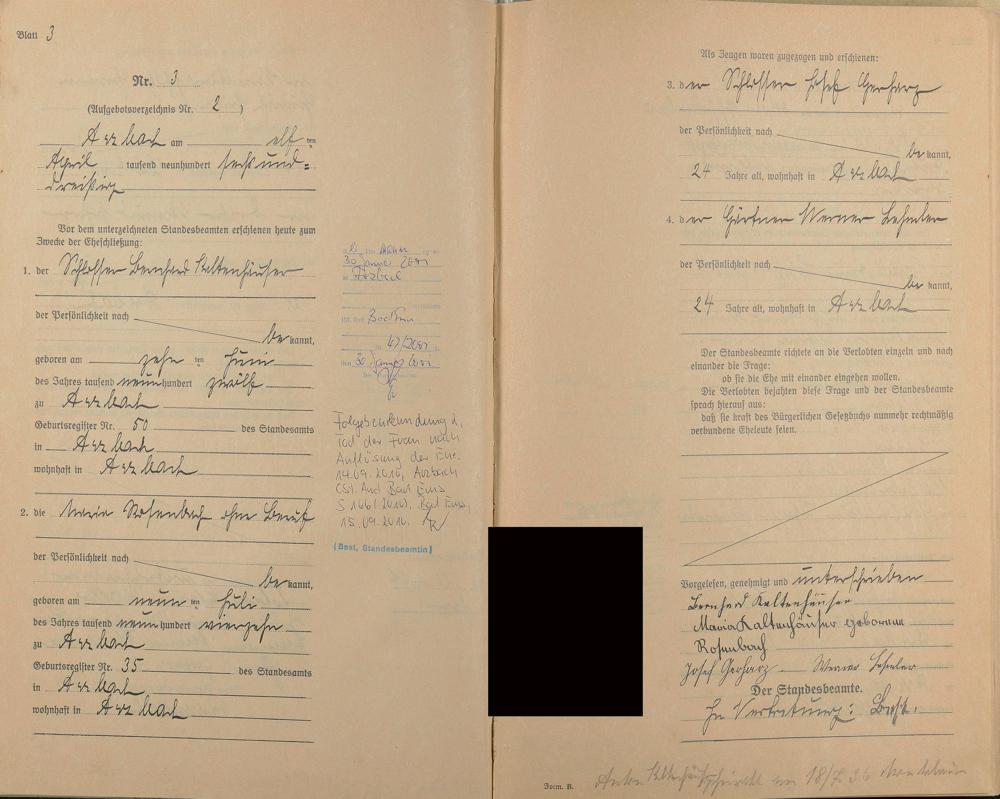 Blatt 3
Nr. 3
(Aufgebotsverzeichnis Nr. 2 )
Arzbach am elf ten
April tausend neunhundert sechsund=
dreißig
Vor dem unterzeichneten Standesbeamten erschienen heute zum
Zwecke der Eheschließung:
1. der Schlosser Bernhard Kaltenhäuser
der Persönlichkeit nach
be kannt,
geboren am zehn ten Juni
des Jahres tausend neunhundert zwölf
zu Arzbach
Geburtsregister Nr. 50 des Standesamts
in Arzbach
wohnhaft in Arzbach
2. die Maria Rosenbach ohne Beruf
der Persönlichkeit nach
be kannt,
geboren am neun ten Juli
des Jahres tausend neunhundert vierzehn
zu Arzbach
Geburtsregister Nr. 35 des Standesamts
in Arzbach
wohnhaft in Arzbach
Mann
30. Januar 2001
Arzbach
Bad Ems
47/2001
30. Januar 2001
Folgebeurkundung ü.
Tod der Frau nach
Auflösung der Ehe.
14.09.2016, Arzbach
(St. Amt Bad Ems
S 166/2016), Bad Ems,
15.09.2016.
(Best, Standesbeamtin)
Als Zeugen waren zugezogen und erschienen:
3. der Schlosser Josef Gerharz
der Persönlichkeit nach
be kannt,
24 Jahre alt, wohnhaft in Arzbach
4. der Gärtner Werner Lehmler
der Persönlichkeit nach
be kannt,
24 Jahre alt, wohnhaft in Arzbach
Der Standesbeamte richtete an die Verlobten einzeln und nach
einander die Frage:
ob sie die Ehe mit einander eingehen wollen.
Die Verlobten bejahten diese Frage und der Standesbeamte
sprach hierauf aus:
daß sie kraft des Bürgerlichen Gesetzbuchs nunmehr rechtmäßig
verbundene Eheleute seien.
Vorgelesen, genehmigt und unterschrieben
Bernhard Kaltenhäuser
Maria Kaltenhäuser geborene
Rosenbach
Josef Gerharz Werner Lehmler
Der Standesbeamte.
In Vertretung: Best.
Form. B.
am 18/7. 36